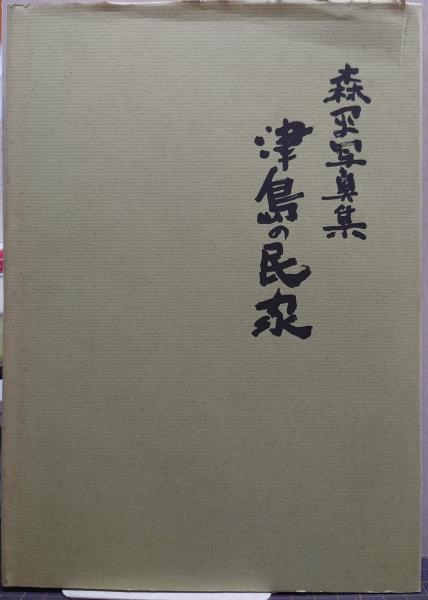 森写真集
津島の民家